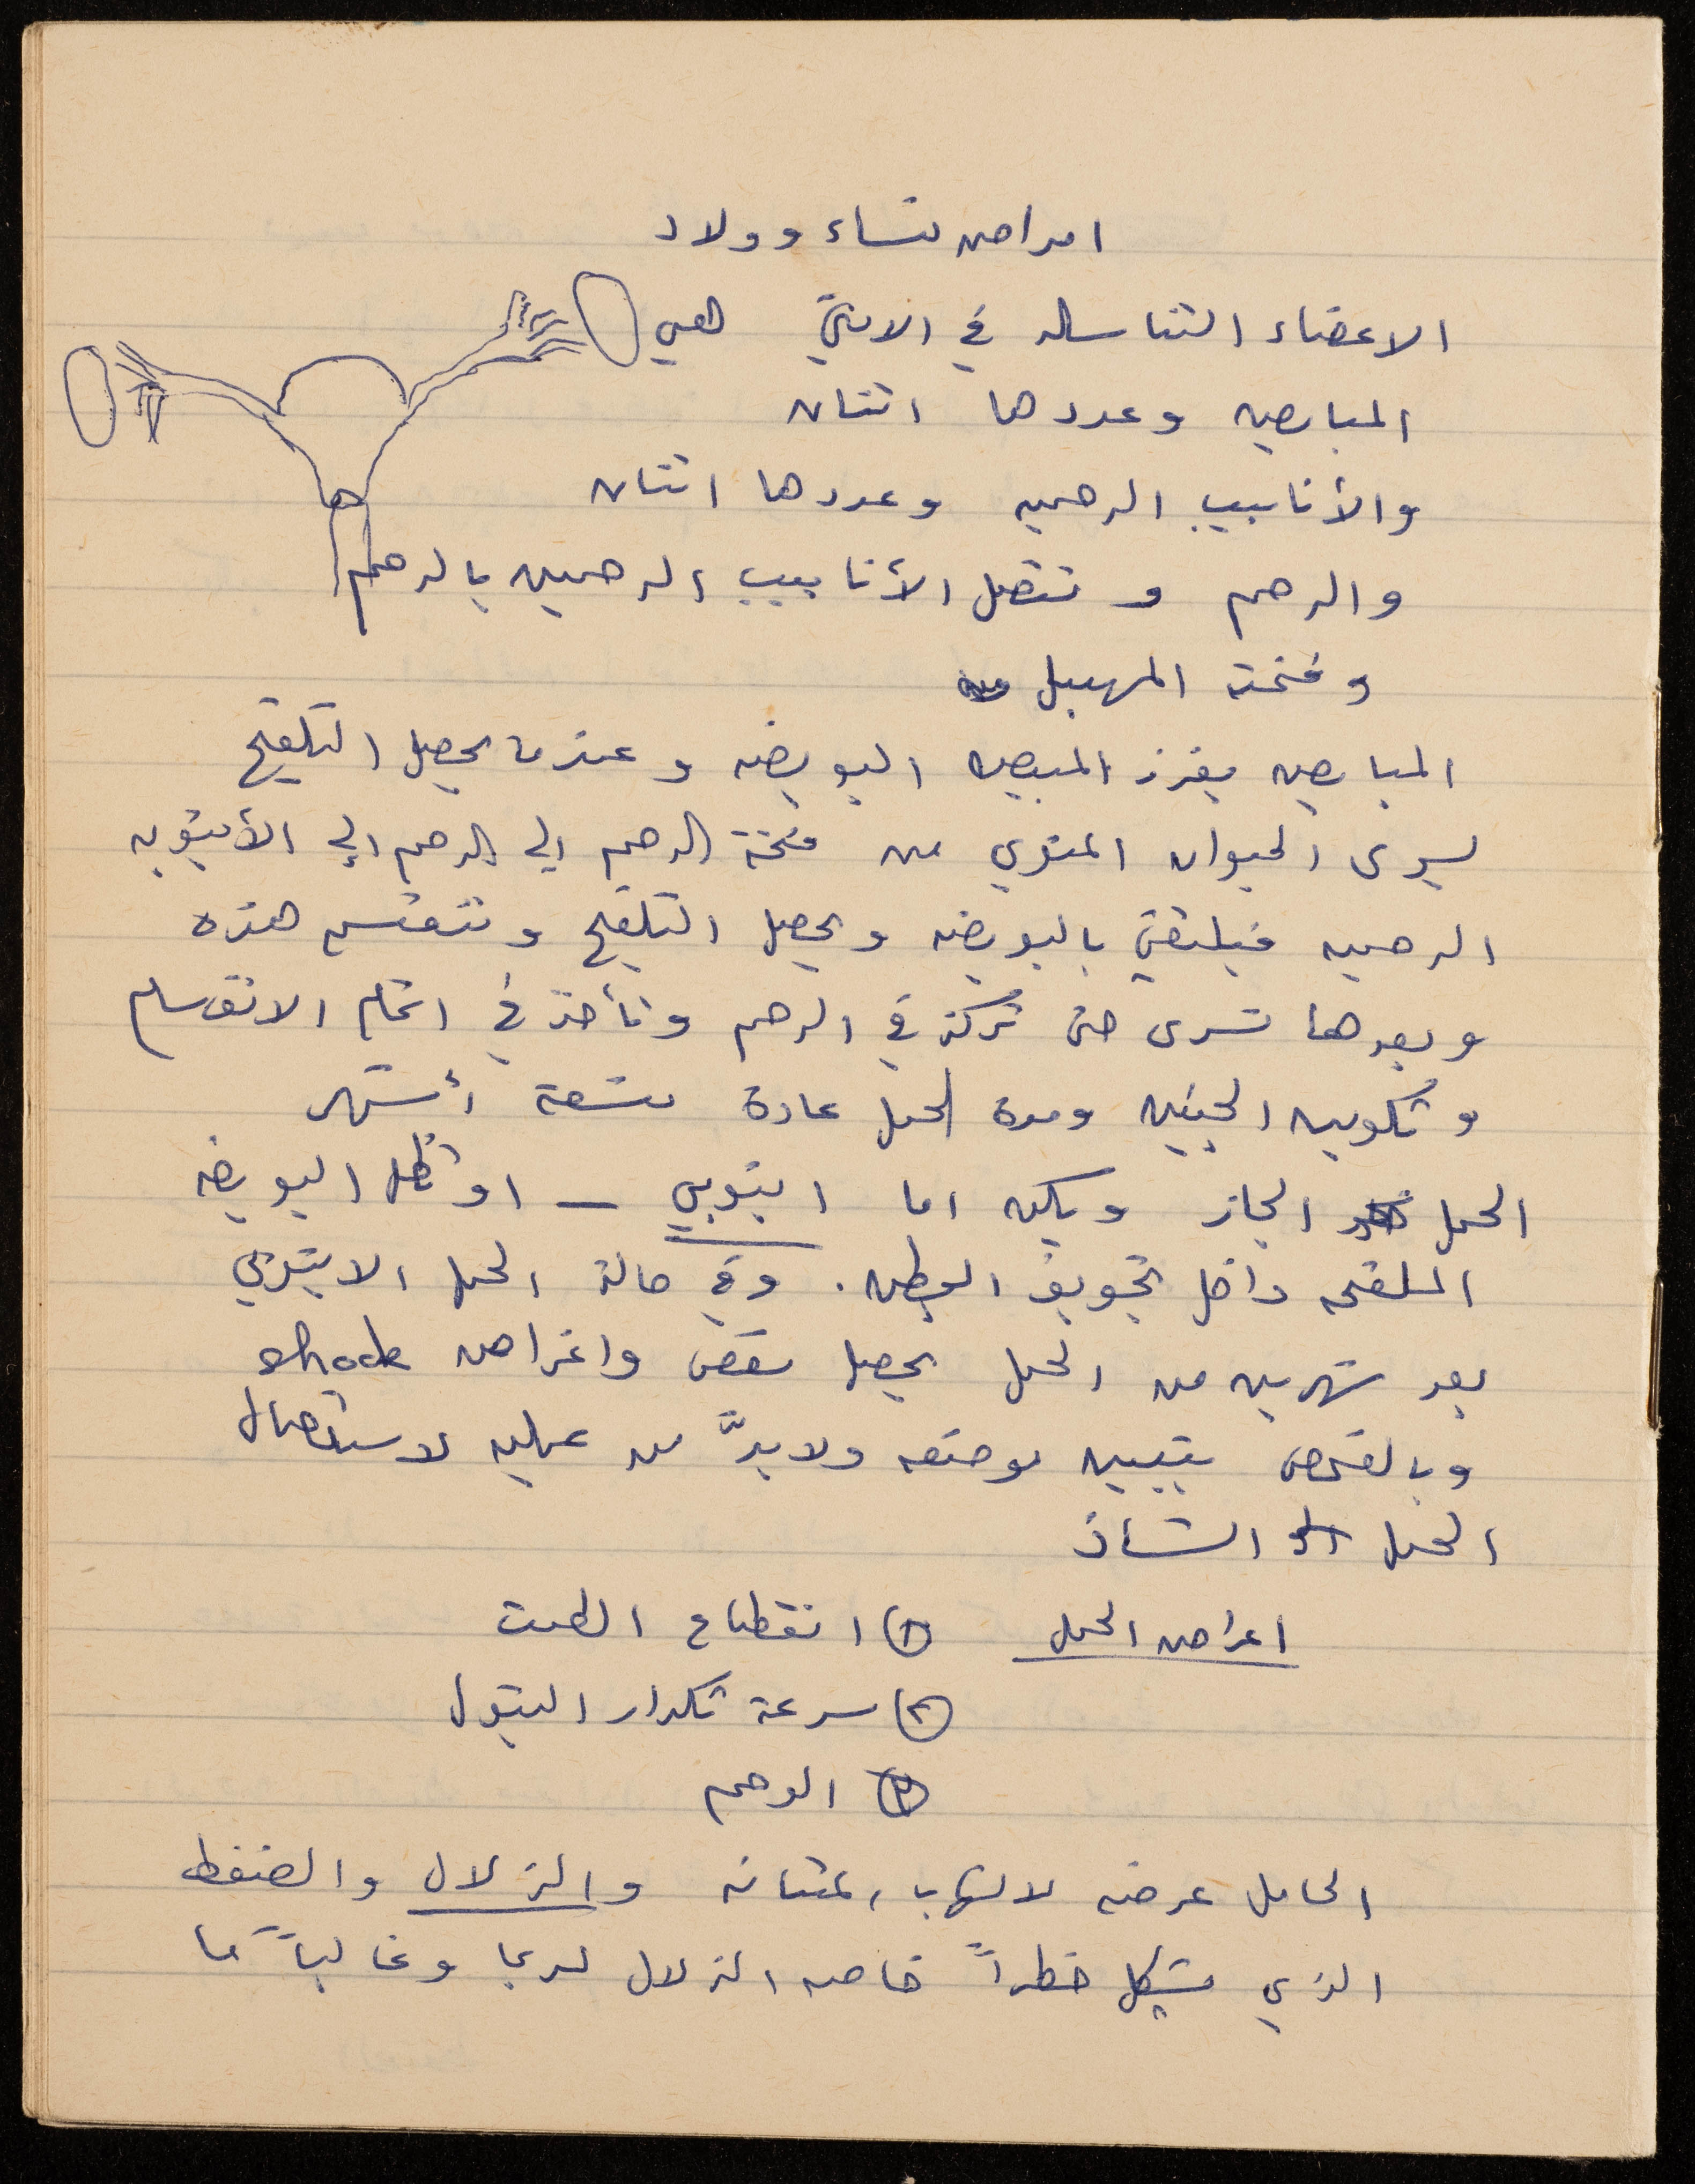 امراض نساء وولاد
الاعضاء التناسليه في الانثى هي
المبايض وعددها اثنان
والأنابيب الرحميه وعددها اثنان
والرحم وتتصل الأنابيب الرحميه بالرحم
وفتحة المهبل
المبايض يفرز المبيض البويضه وعندما يحصل التلقيح
يسرى الحيوان المنوي من فتحة الرحم الى الرحم الى الأنبوبه
الرحميه فيلتقي بالبويضه ويحصل التلقيح وتنقسم هذه
وبعدها تسرى حتى تركز في الرحم وتأخذ في اتمام الانقسام
وتكوين الجنين ومدة الحمل عادة تسعة أشهر
الحمل ويكون اما انبوبي – او تظل البويضه
الملقحه داخل تجويف البطن. وفي حالة الحمل الانبوبي
بعد شهرين من الحمل يحصل مغص واعراض shock
وبالفحص يتبين موضعه ولا بدَّ من عمليه لاستئصال
الحمل الشاذ
اعراض الحمل ١ انقطاع الطمث
٢ سرعة تكرار التبول
٣ الوحم
الحامل عرضه لالتهاب المثانه والزلال والضغط
الذي يشكل خطراً خاصه الزلال لديها وغالباً ما